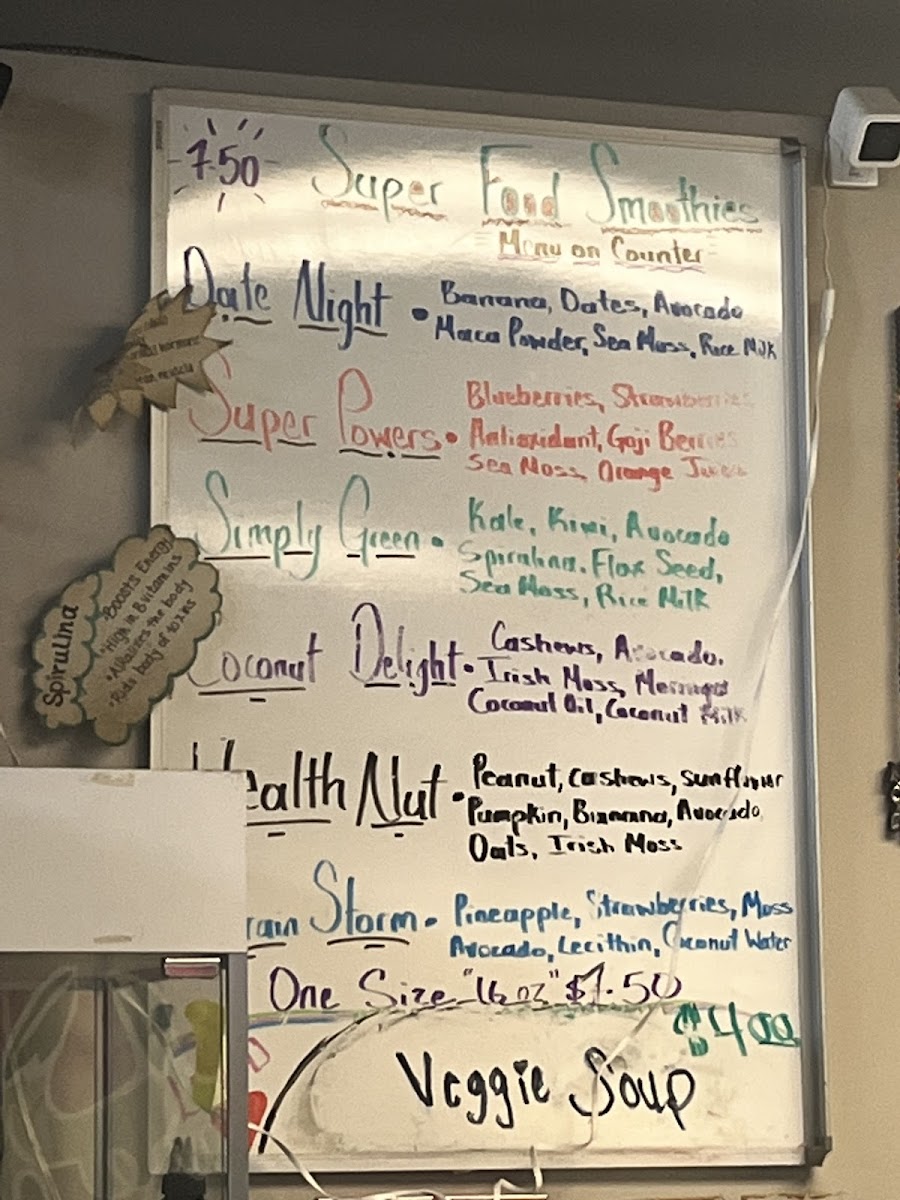 7.50
Super Food Smoothies
Menu on Counter
Date Night • Banana, Dates, Avocado
Maca Powder, Sea Moss, Rice Milk
Super Powers • Blueberries, Strawberries
Antioxidant, Goji Berries
Sea Moss, Orange Juice
Simply Green • Kale, Kiwi, Avocado
Spirulina, Flax Seed,
Sea Moss, Rice Milk
Spirulina
•Boosts Energy
•High in B vitamins
•Alkalizes the body
•Rids body of toxins
Coconut Delight • Cashews, Avocado,
Irish Moss,
Coconut Oil, Coconut Milk
Health Nut • Peanut, Cashews, Sunflower
Pumpkin, Bannana, Avocado,
Oats, Irish Moss
rain Storm • Pineapple, Strawberries, Moss
Avocado, Lecithin, Coconut Water
One Size "16 oz" $7.50
$4.00
Veggie Soup